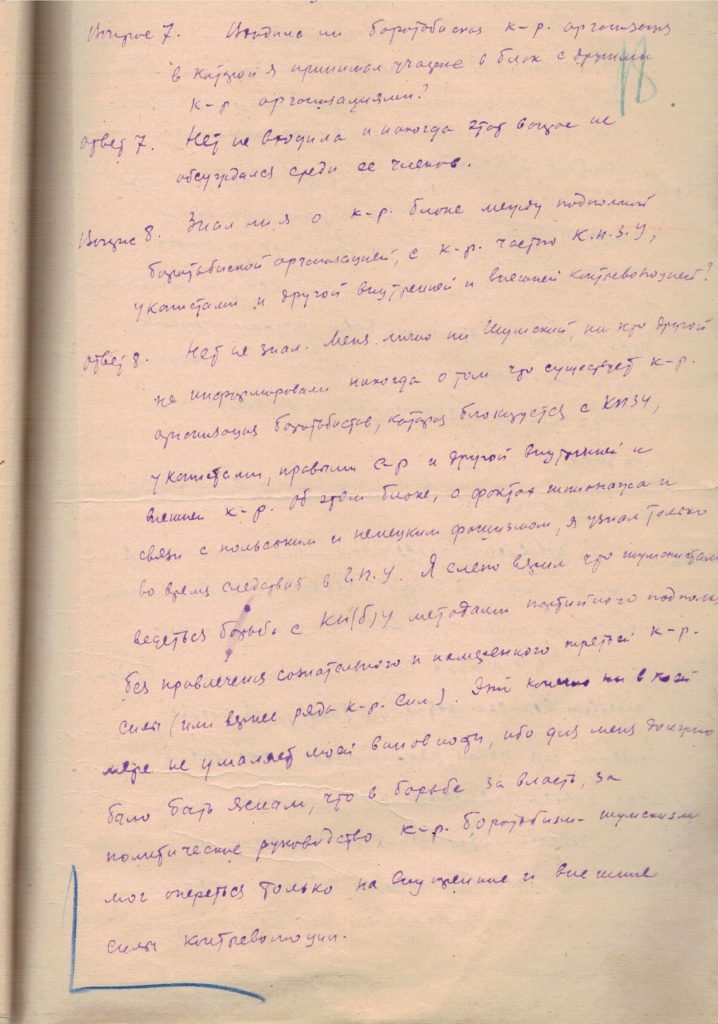 Вопрос 7. Входила ли боротьбиская к-р. организация
в которой я принимал участие в блок с другими
к-р. организациями?
18
Ответ 7. Нет не входила и никогда этот вопрос не
обсуждался среди ее членов.
Вопрос 8. Знал ли я о к-р. блоке между подпольной
боротьбиской организацией, с к-р. частью К.П.З.У,
укапистами и другой внутренней и внешней контрреволюцией?
Ответ 8. Нет не знал. Меня лично ни Шумский, ни кто другой
не информировали никогда о том что существует к-р.
организация боротьбистов, которая блокируется с КПЗУ,
укапистами, правыми с-р и другой внутренней и
внешней к-р. Об этом блоке, о фактах шпионажа и
связи с польским и немецким фашизмом, я узнал только
во время следствия в Г.П.У. Я слепо верил что шумскистами
ведеться борьба с КП(б)У методами партийного подполья
без привлечения сознательного и намеренного третьей к-р.
силы (или вернее ряда к-р. сил). Это конечно ни в коей
мере не умаляет моей виновности, ибо для меня должно
было быть ясным, что в борьбе за власть, за
политическое руководство, к-р. боротьбизм-шумскизм
мог опереться только на внутренние и внешние
силы контрреволюции.